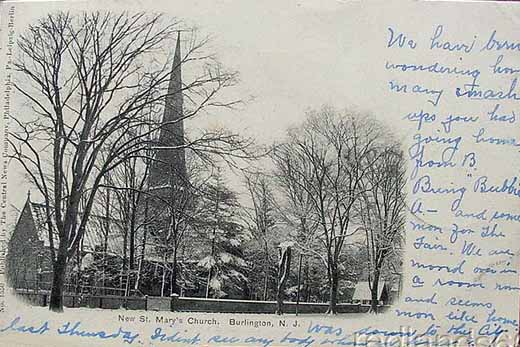 We have been
wondering how
many smash
ups you had
going home
from B
Being "Bubbl
A — and some
mon for the
Fair. We are
moved over in
a room now
and seems
more like home
last Thursday. I dident see any body Was down to the City
New St. Mary's Church. Burlington, N. J.
No. 1350 Published by The Central News Company, Philadelphia, Pa.-Leipzig-Berlin